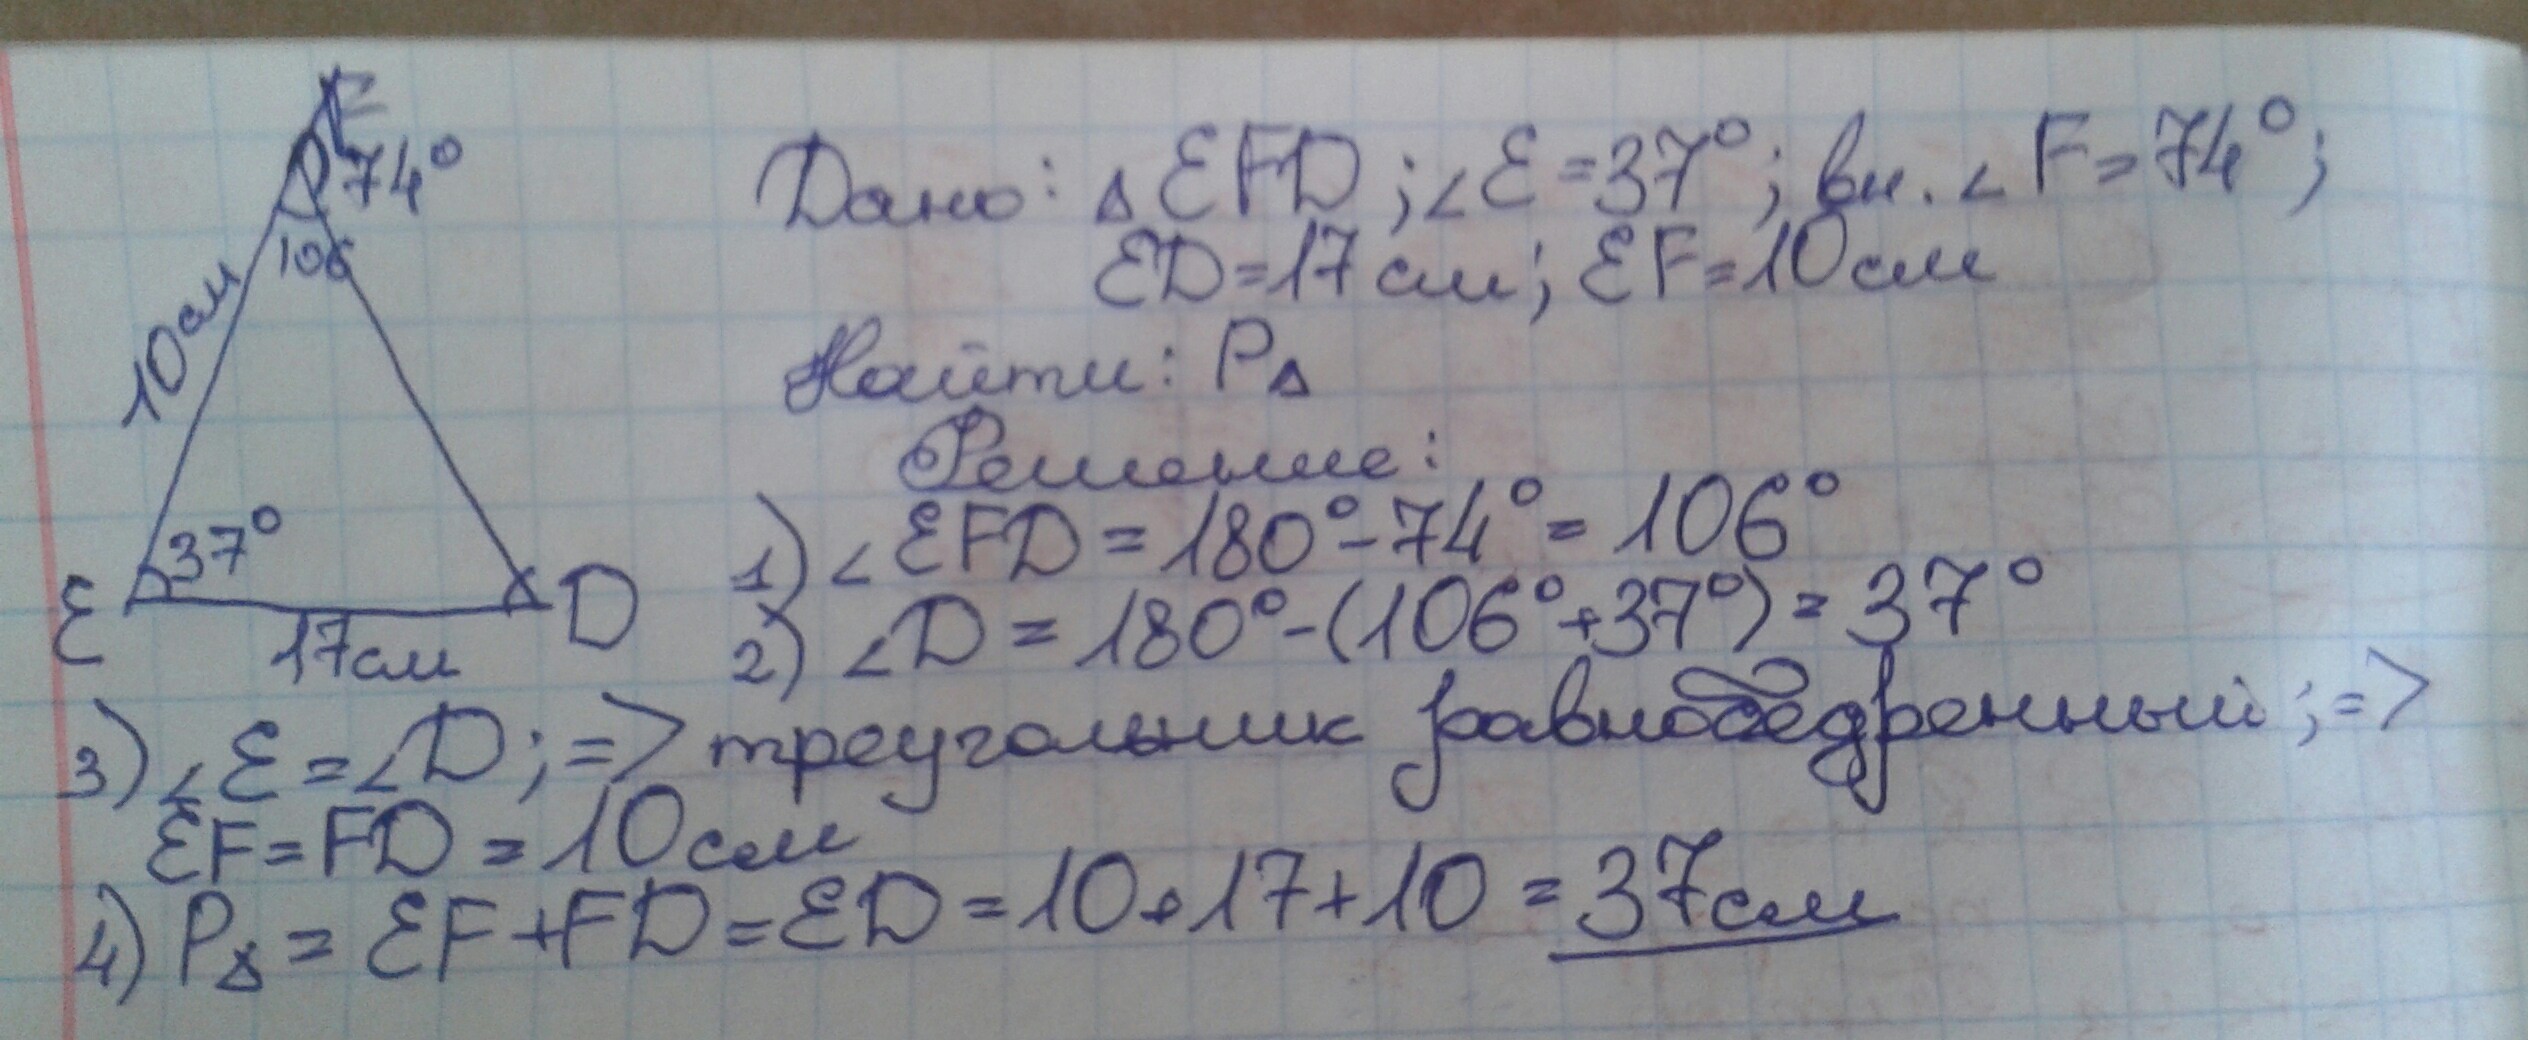 F
74°
106
10см
37°
E
D
17см
Дано: △EFD; ∠E=37°; вн. ∠F=74°;
ED=17см; EF=10см
Найти: P△
Решение:
1) ∠EFD=180°-74°=106°
2) ∠D=180°-(106°+37°)=37°
3) ∠E=∠D; => треугольник равнобедренный; =>
EF=FD=10см
4) P△=EF+FD=ED=10+17+10=37см